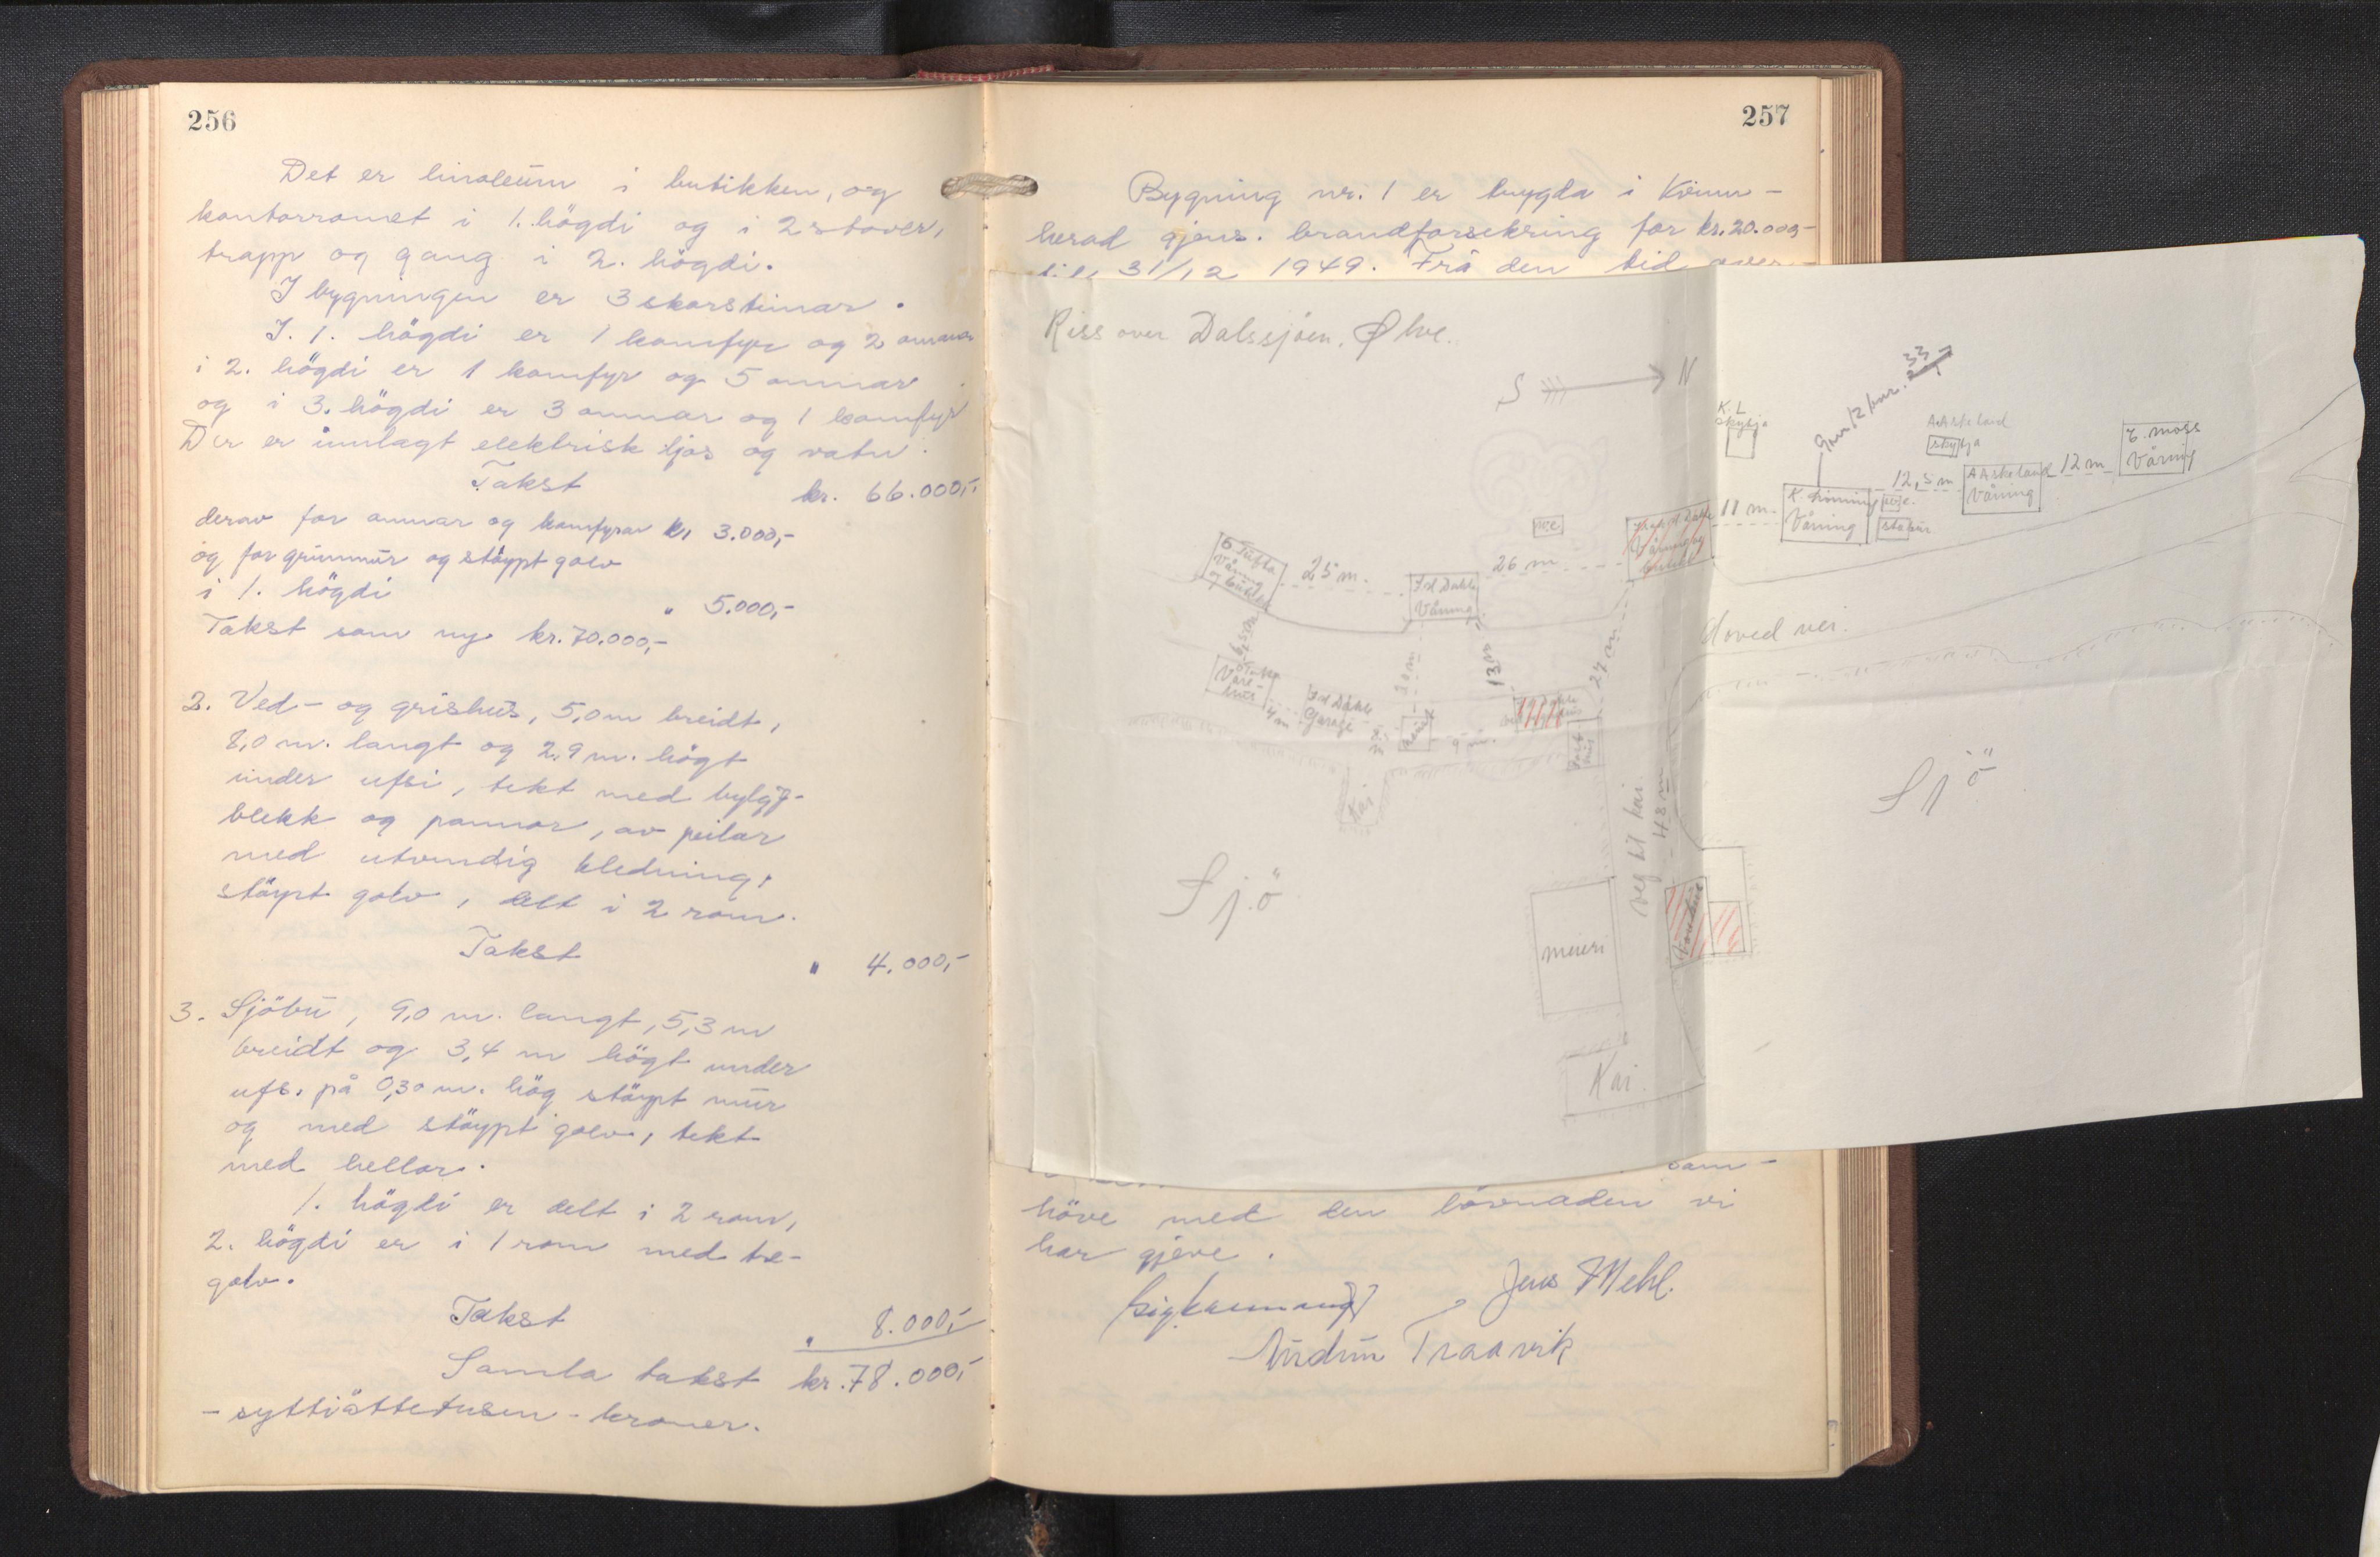 256
Det er linoleum i butikken, og
kontorromet i 1. högdi og i 2 stover,
trapp og gang i 2. högdi.
I bygningen er 3 skorsteinar.
I. 1. högdi er 1 komfyr og 2 omnar
i 2. högdi er 1 komfyr og 5 omnar
og i 3. högdi er 3 omnar og 1 komfyr
Der er innlagt elektrisk ljos og vatn.
Takst kr. 66.000,-
derav for omnar og komfyrar kr 3.000,-
og for grunnmur og stöypt golv
i 1. högdi " 5.000,-
Takst som ny kr. 70.000,-
2. Ved- og grishus, 5,0 m breidt,
8,0 m. langt og 2,9 m. högt
under ufsi, tekt med bylgj-
blekk og pannor, av peilar
med utvendig kledning,
stöypt golv, delt i 2 rom.
Takst " 4.000,-
3. Sjöbu, 9,0 m. langt, 5,3 m
breidt og 3,4 m högt under
ufs. på 0,30 m. hög stöypt mur
og med stöypt golv, tekt
med hellor.
1. högdi er delt i 2 rom,
2. högdi er i 1 rom med tre-
golv.
Takst " 8.000,-
Samla takst kr. 78.000,-
- syttiåttetusen - kroner.
257
Bygning nr. 1 er trygda i Kvinn-
herad gjens. brandforsekring for kr. 20.000,-
til 31/12 1949. Frå den tid over-
Riss over Dalssjöen, Ølve.
S N
K. L
Skykja
Gnr 12 bnr. 33
A Askeland
Skykja
E. Moss
Våning
12 m
A Askeland
Våning
12,5 m
K.
Våning
stabur
11 m.
Våning og
butikk
26 m
J. d Dahle
Våning
25 m.
E Tufta
Våning
og butikk
Hoved vei.
Vare-
hus
4 m
J d Dahle
Garage
20 m
13 m
9 m.
27 m
Kai
Sjö
Sjö
veg til kai.
48 m
meieri
Varehus
Kai.
sam-
höve med den lovnaden vi
har gjeve.
Jens Mehl.
Audun Traavik